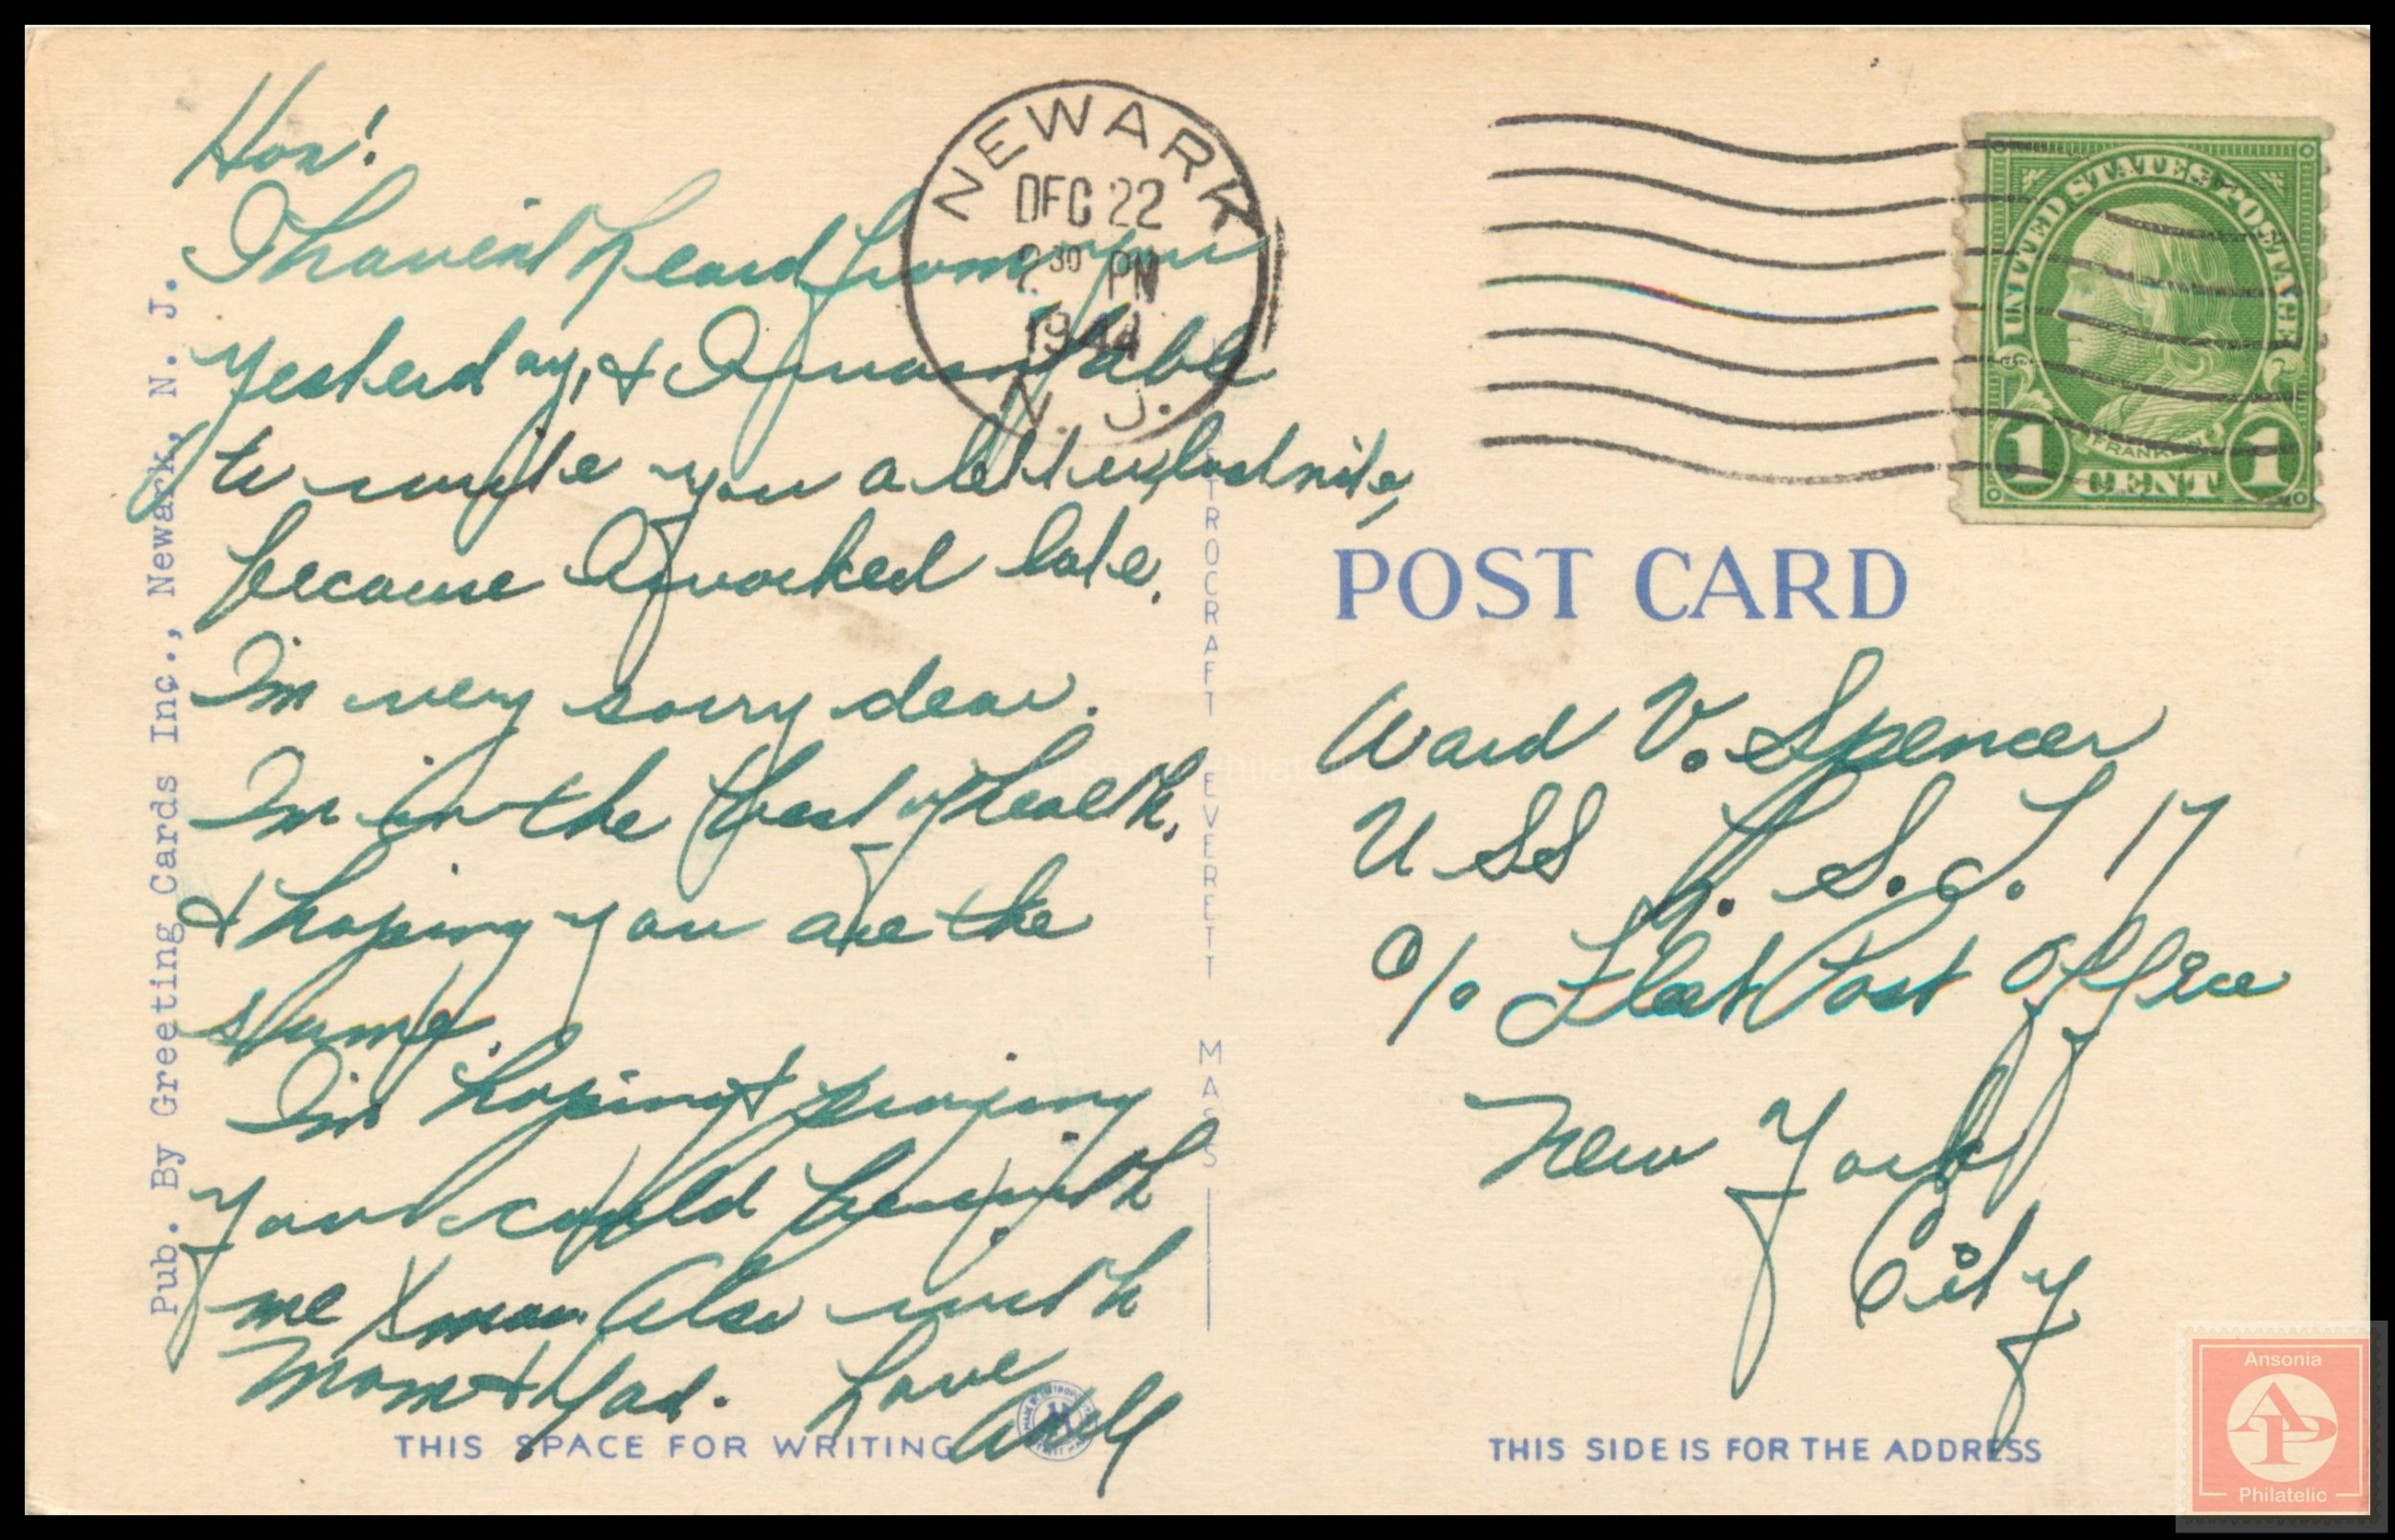 Hon!
I haven't heard from you
yesterday, & I wasn't able
to write you a letter, last nite,
because I worked late.
I'm very sorry dear.
I'm in the best of health,
& hoping you are the
same.
I'm hoping & praying
you could be with
me Xmas. Also with
Mom & Dad. Love
THIS SPACE FOR WRITING
Pub. By Greeting Cards Inc., Newark, N. J.
TROCRAFT EVERETT MASS
NEWARK
DEC 22
30 PM
1944
N. J.
UNITED STATES POSTAGE
FRANKLIN
1 CENT 1
POST CARD
Ward V. Spencer
USS L.S.T. 17
c/o Fleet Post Office
New York
City
THIS SIDE IS FOR THE ADDRESS
Ansonia
AP
Philatelic